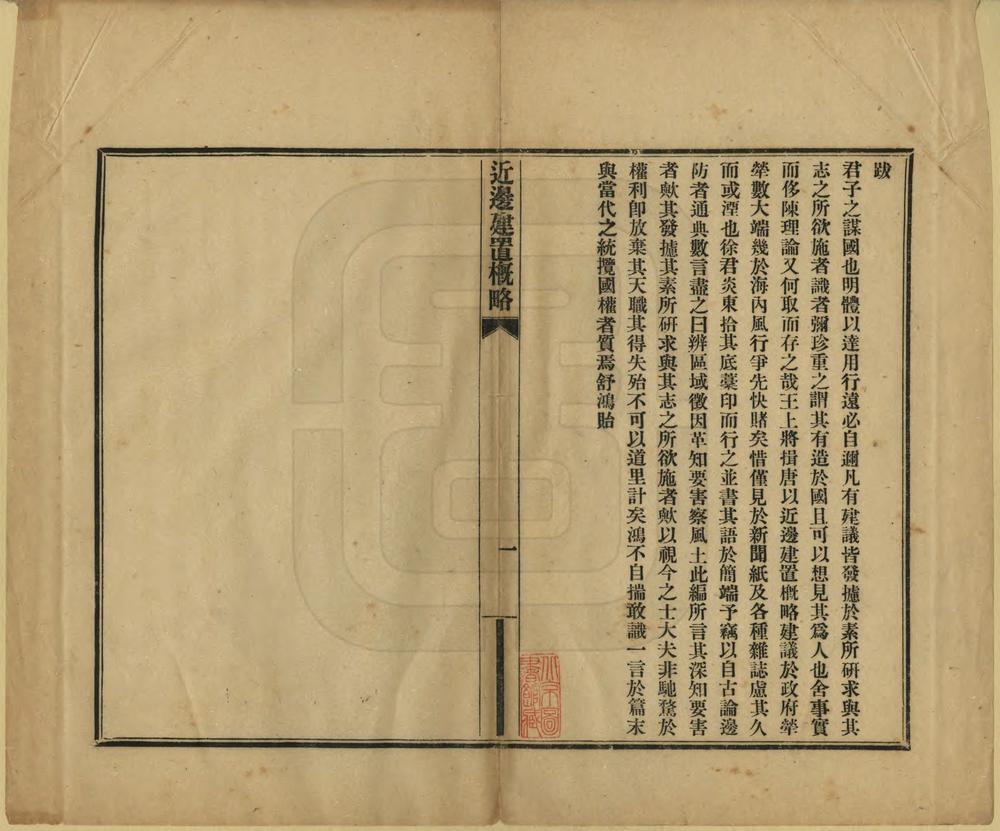 跋
君子之謀國也明體以達用行遠必自邇凡有建議皆發攄於素所研求與其
志之所欲施者識者彌珍重之謂其有造於國且可以想見其爲人也舍事實
而侈陳理論又何取而存之哉王上將揖唐以近邊建置槪略建議於政府犖
犖數大端幾於海內風行爭先快賭矣惜僅見於新聞紙及各種雜誌慮其久
而或湮也徐君炎東拾其底藁印而行之並書其語於簡端予竊以自古論邊
防者通典數言盡之曰辨區域徵因革知要害察風土此編所言其深知要害
者歟其發攄其素所研求與其志之所欲施者歟以視今之士大夫非馳騖於
權利卽放棄其天職其得失殆不可以道里計矣鴻不自揣敢識一言於篇末
與當代之統攬國權者質焉舒鴻貽
近邊建置槪略
一